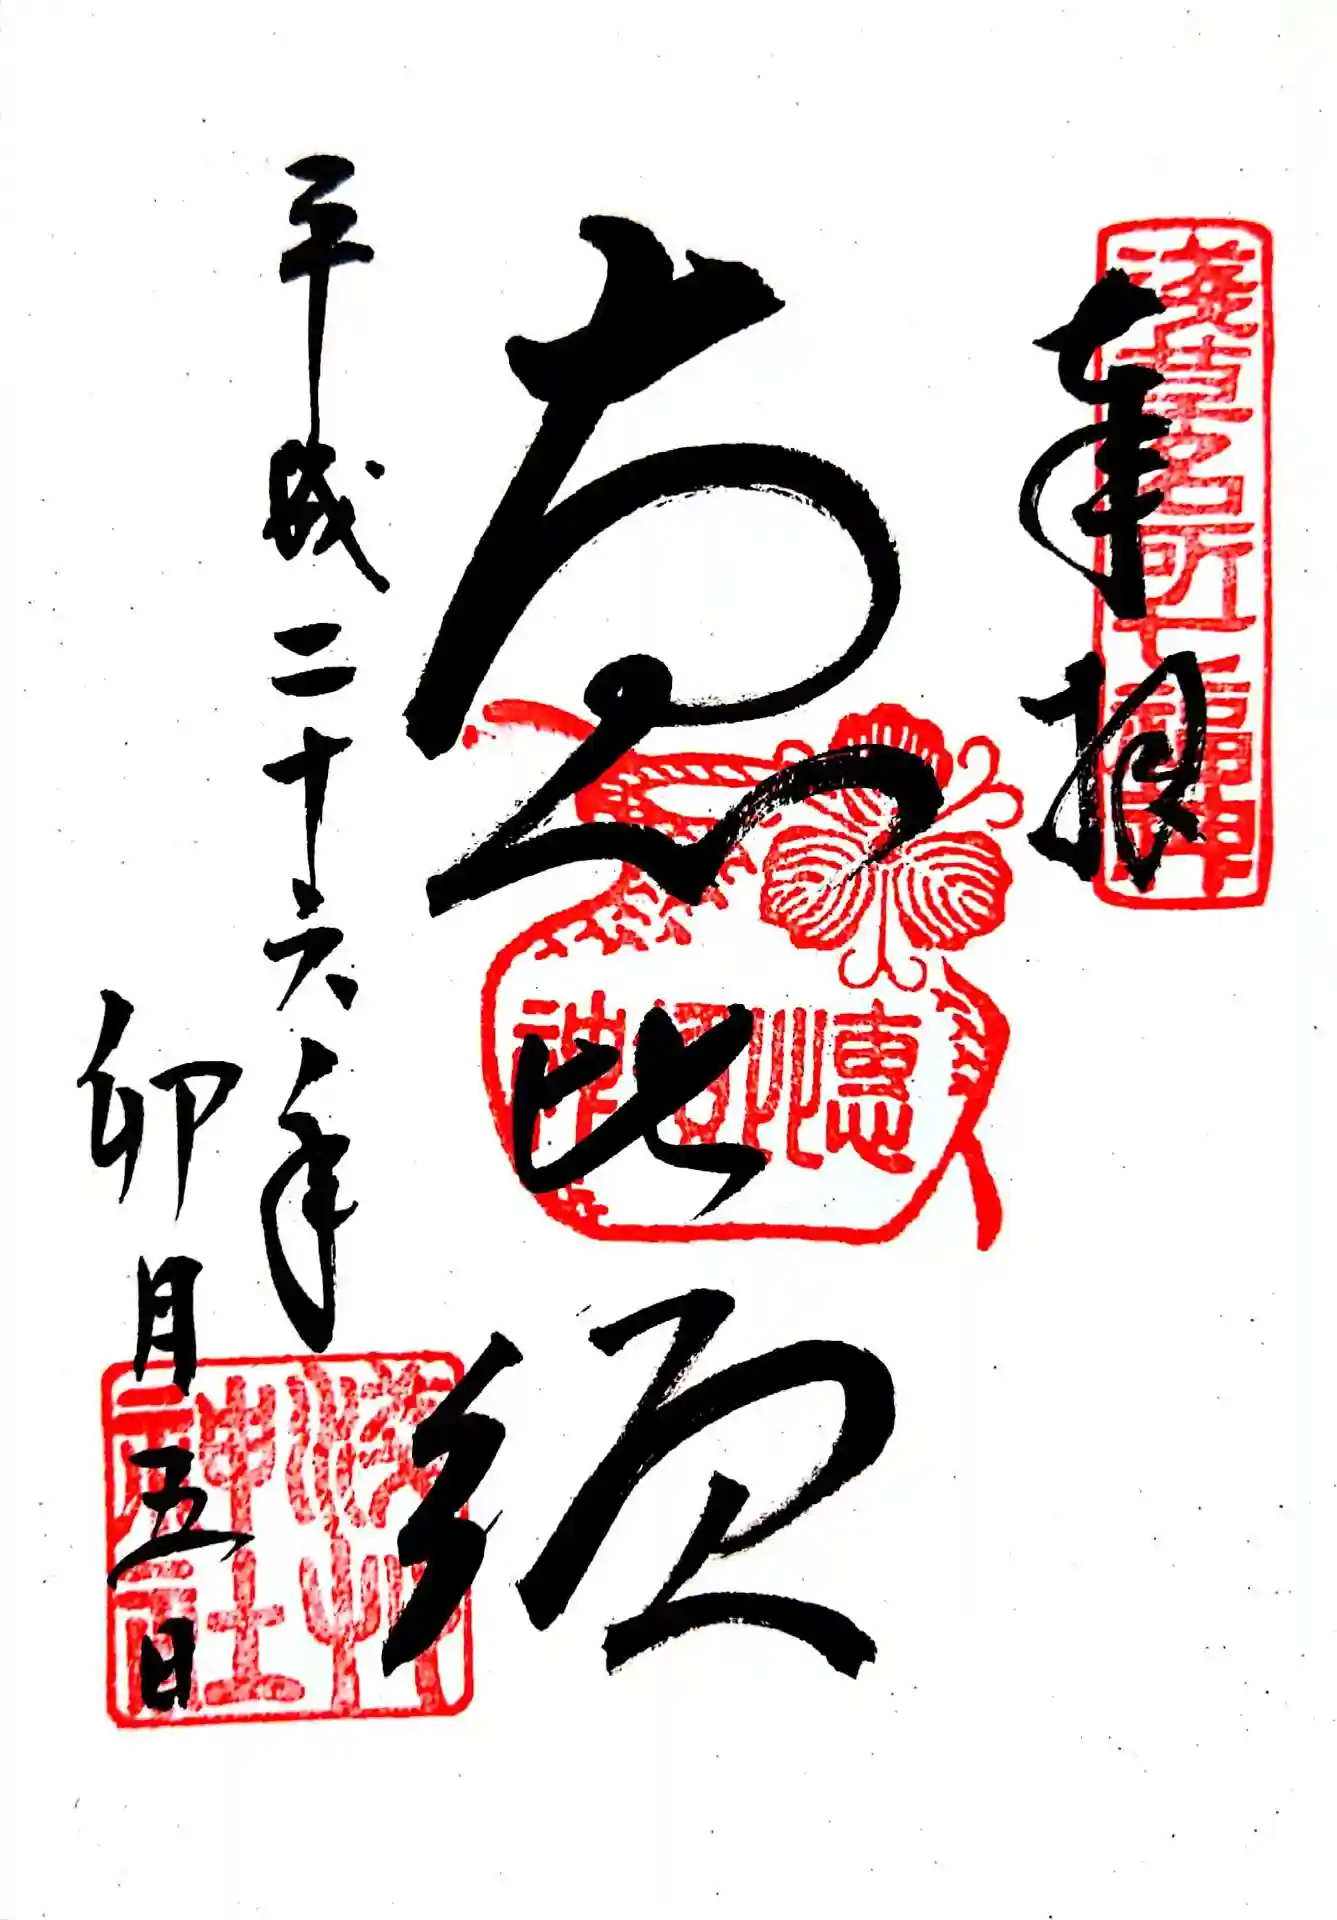 奉拝
淺草名所七福神
恵比須
恵比須神
平成二十六年
卯月五日
淺草神社